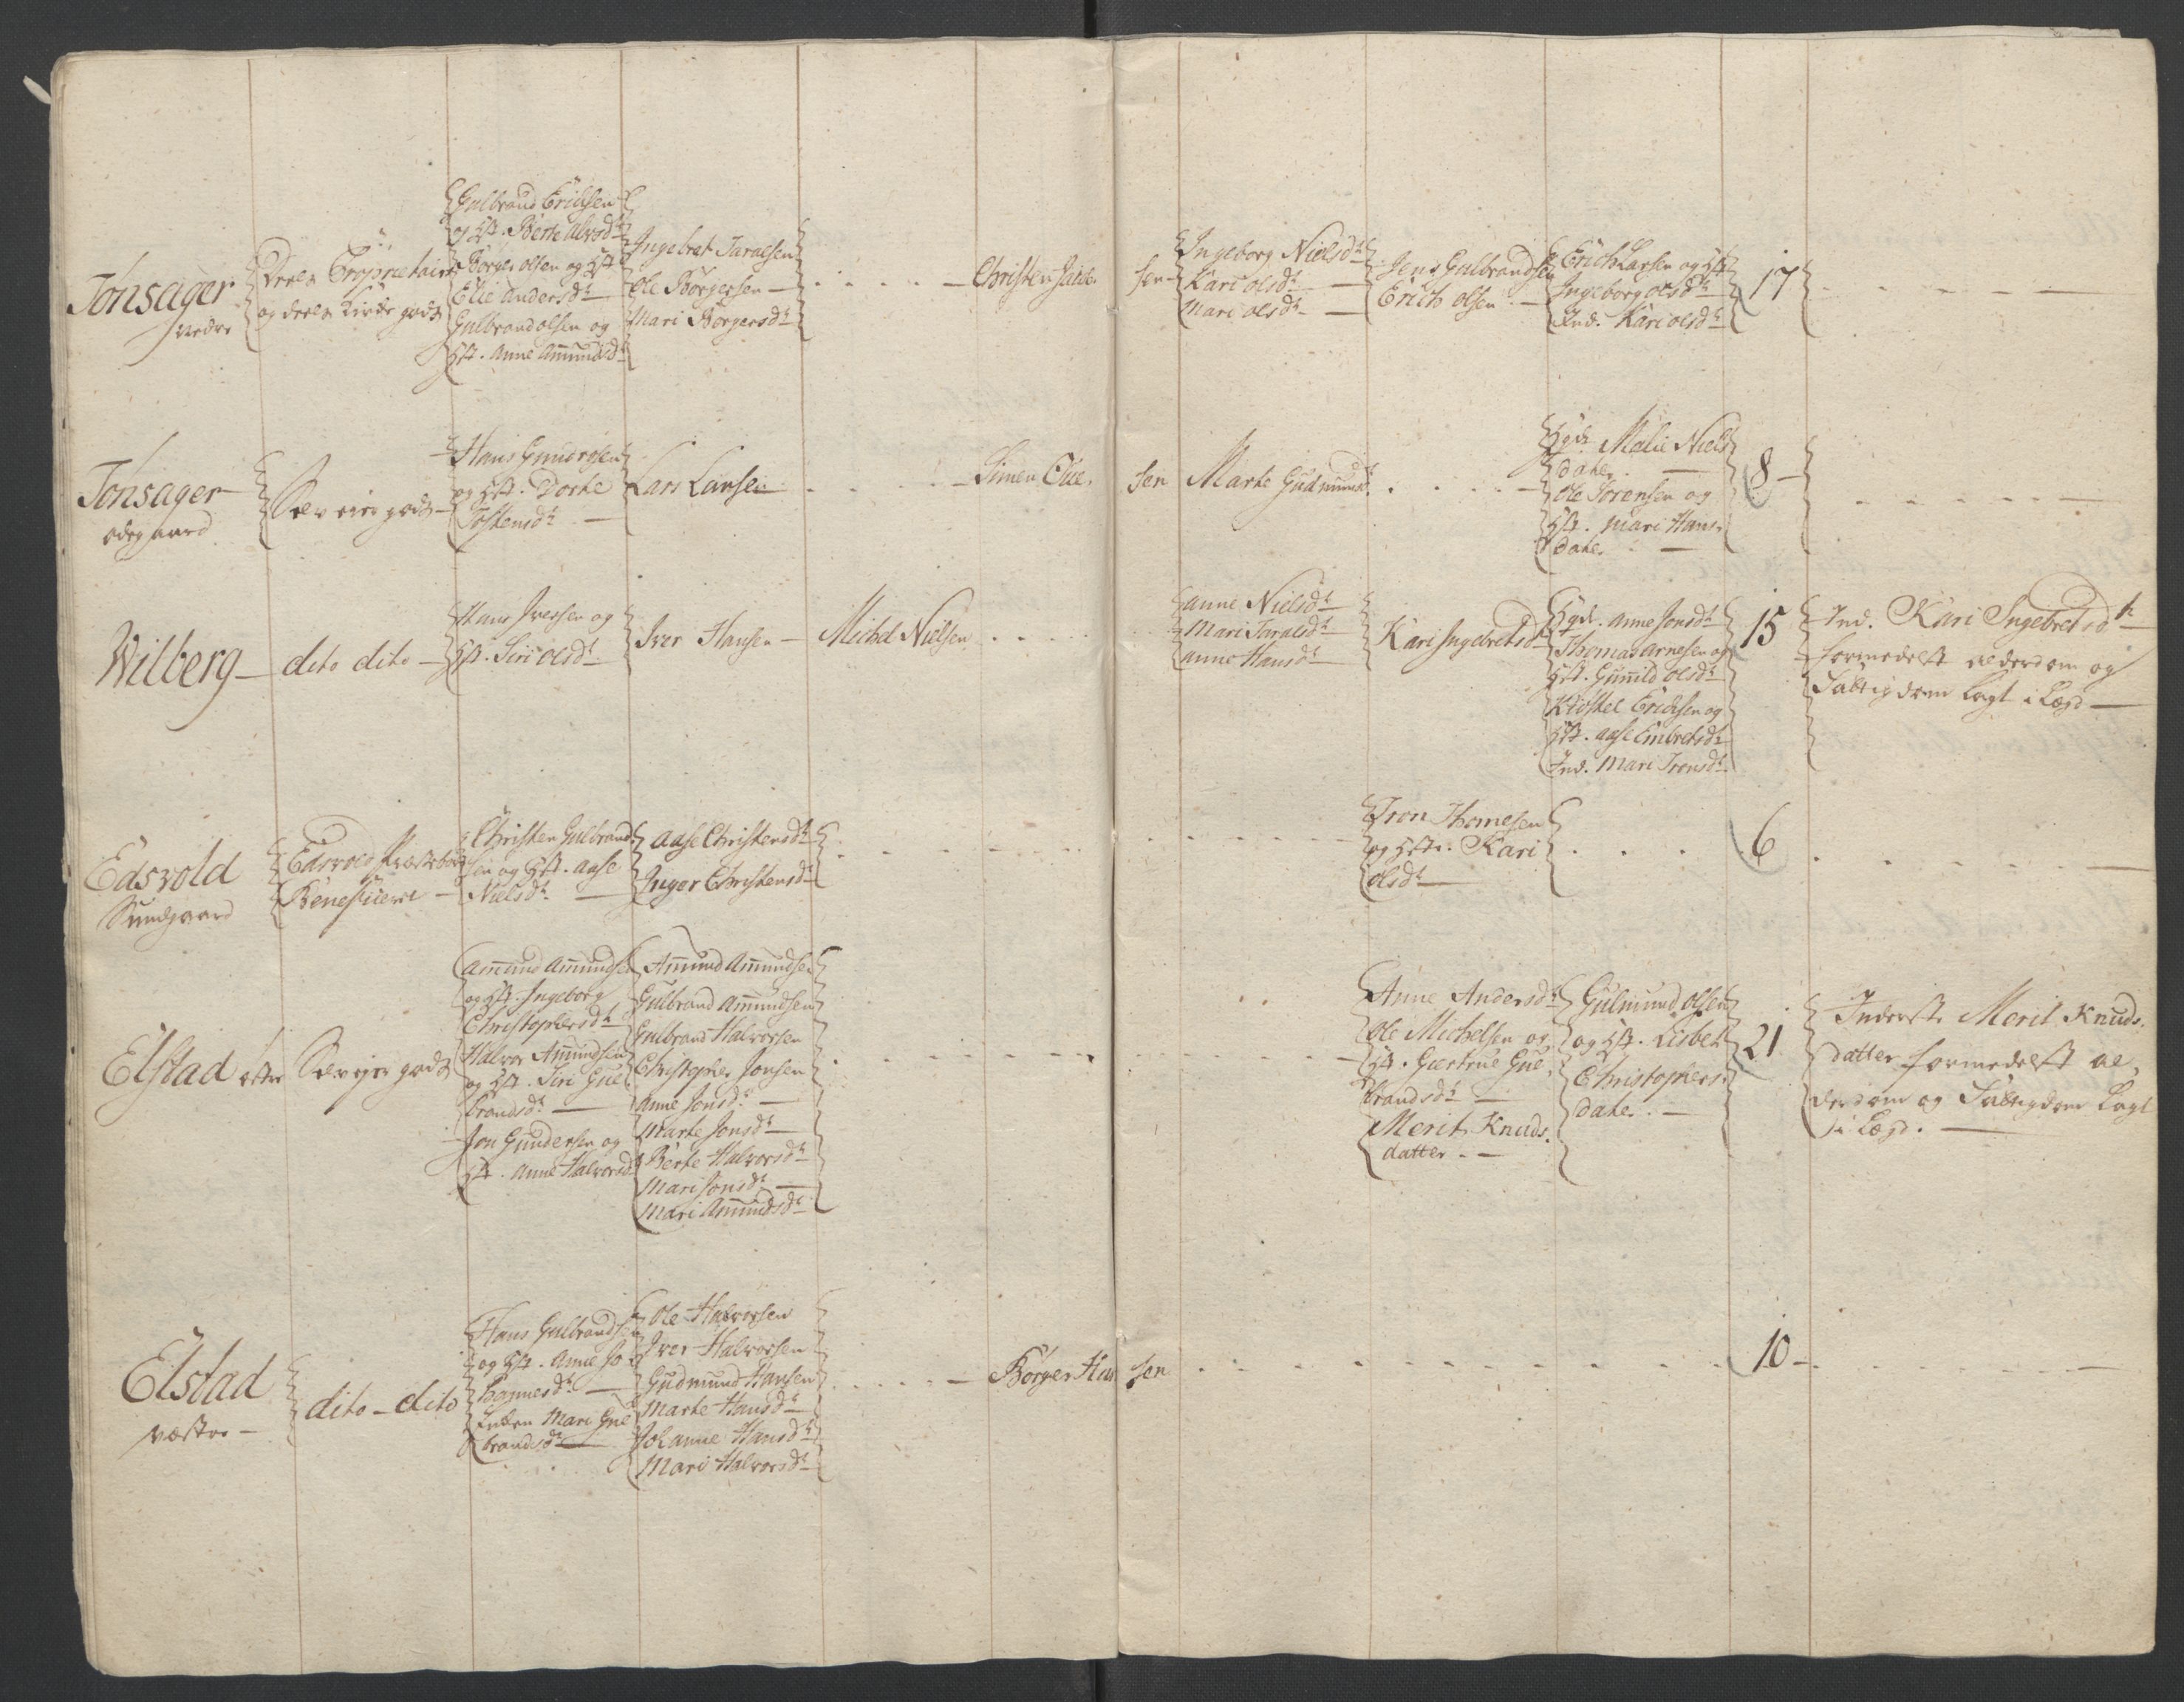 Tonsager
nedre
Deels Proprietair
og deels Kirke gods
Gulbrand Erichsen
og Hst. Berte Alvsdt
Børger olsen og Hst
Elie Andersdt
Gulbrand olsen og
Hst. Anne Amundsdt
Ingebret Taralsen
Ole Børgersen
Mari Børgersdt
Christen
sen
Ingeborg Nielsdt
Kari olsdt
Mari olsdt
Jens Gulbrandsen
Erich olsen
Erich Larsen og Hst
Ingeborg olsdt
Ind. Kari olsdt
17
Tonsager
ødegaard
Selv eier gods
Hans
og Hst. Dorte
Tostensdt
Lars Larsen
Simen Ole,
sen
Marte Gudmundsdt
Hgdr. Malie Niels
dater
Ole Sørensen og
Hst. Mari Hans,
dater
8
Wilberg
dito dito
Hans Iversen og
Hst. Siri olsdt
Iver Hansen
Michel Nielsen
Anne Nielsdt
Mari Taralsdt
Anne Hansdt
Kari Ingebretsdt
Hgdr. Anne Jonsdt
Thomas Arnesen og
Hst. Gunild olsdt
Kiøstel Erichsen og
Hst. Aase Embretsdt
Ind. Mari Tronsdt
15
Ind. Kari Ingebretsdtr
formedelst alderdom og
Fattigdom lagt i Lægd
Edsvold
Sundgaard
Edsvold Præstebols
Beneficeret
Christen Gulbrand
sen og Hst. Aase
Nielsdt
Aase Christensdt
Inger Christensdt
Tron Thomesen
og Hstr. Kari
olsdt
6
Elstad østre
Selveier gods
Amund Amundsen
og Hst. Ingeborg
Christophersdt
Halvor Amundsen
og Hst. Siri Gul
brandsdt
Jon Gundersen og
Hst. Anne Halvorsdt
Amund Amundsen
Gulbrand Amundsen
Gulbrand Halvorsen
Christopher Jonsen
Anne Jonsdt
Marte Jonsdt
Berte Halvorsdt
Mari Jonsdt
Mari Amundsdt
Anne Andersdt
Ole Michelsen og
Hst. Giertrue Gul,
brandsdt
Merit Knuds.
datter
Gulmund olsen
og Hst. Lisbet
Christophers
dater
21
Inderste Merit Knuds,
datter formedelst al,
derdom og Fattigdom lagt
i Lægd.
Elstad
væstre
dito dito
Hans Gulbrandsen
og Hst. Anne Jo
hannesdt
Enken Mari Gul
brandsdt
Ole Halvorsen
Iver Halvorsen
Gudmund Hansen
Marte Hansdt
Johanne Hansdt
Mari Halvorsdt
Børger Han
sen
10